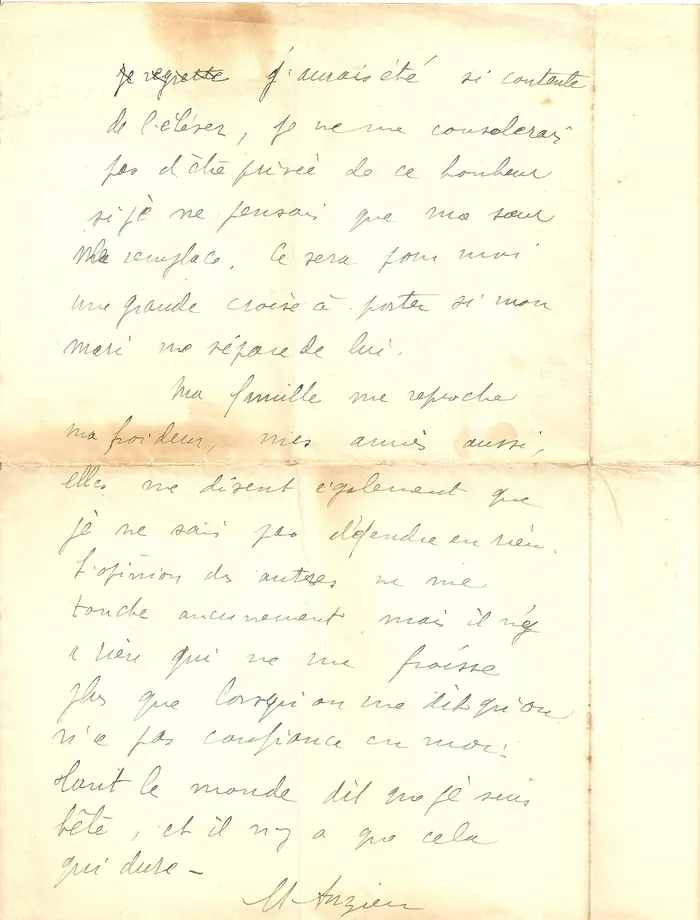 je regrette j'aurais été si contente
de l'élever, je ne me consolerais
pas d'être privée de ce bonheur
si je ne pensais que ma sœur
me remplace. Ce sera pour moi
une grande croise à porter si mon
mari me sépare de lui.
Ma famille me reproche
ma froideur, mes amies aussi,
elles me disent également que
je ne sais pas défendre en rien.
L'opinion des autres ne me
touche aucunement mais il n'y
a rien qui ne me froisse
plus que lorsqu'on me dit qu'on
n'a pas confiance en moi.
tout le monde dit que je suis
bête, et il n'y a que cela
qui dure —
M Anzieu